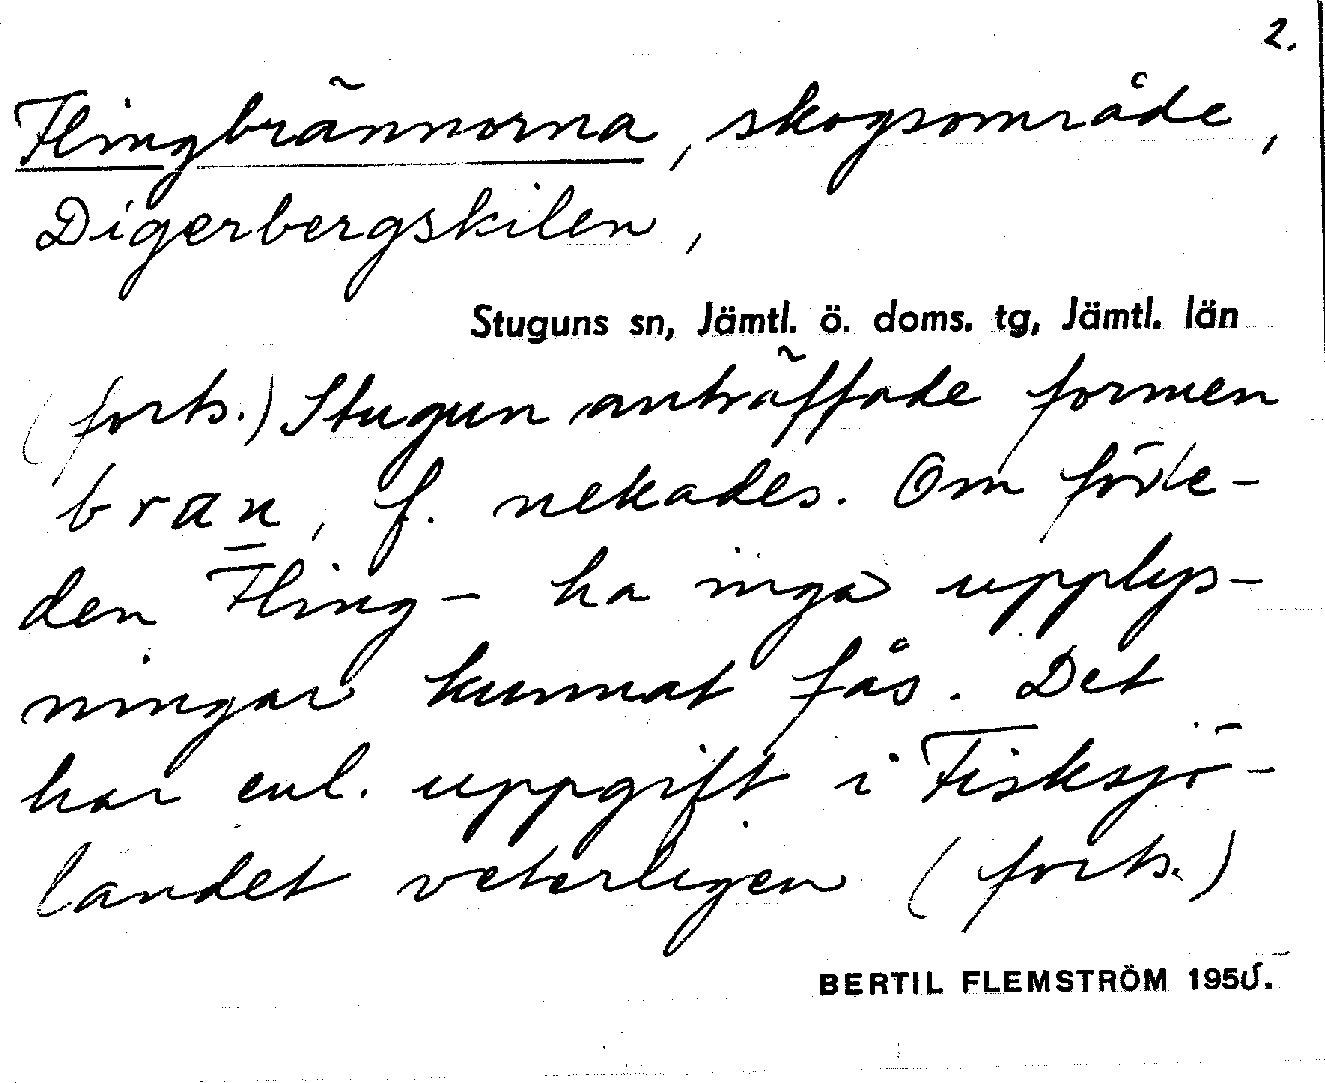 2.
Flingbrännorna, skogsområde,
Digerbergskilen,
Stuguns sn, Jämtl. ö. doms. tg, Jämtl. län
(forts.) Stugun anträffade formen
bran, f. nekades. Om förle-
den Fling- ha inga upplys-
ningar kunnat fås. Det
har enl. uppgift i Fisksjö-
landet veterligen (forts.)
BERTIL FLEMSTRÖM 195